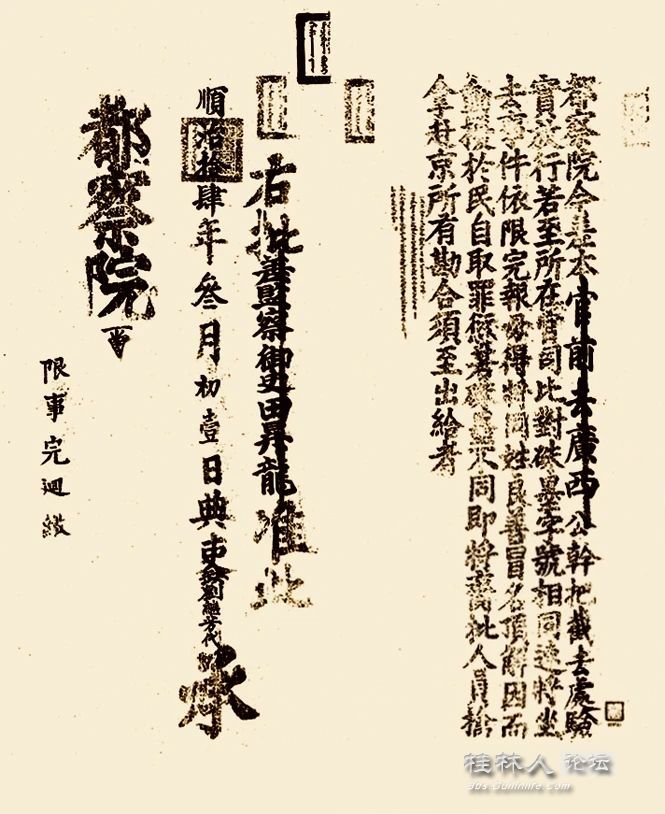 都察院今差本官前去廣西公幹把截去處驗
實放行若至所在官司比對硃墨字號相同速將坐
去事件依限完報毋得將同姓良善冒名頂解因而
擾於民自取罪愆若硃墨不同即將賫批人員搶
拿赴京所有勘合須至出給者
右批差監察御史田昇龍准此
順治拾肆年叁月初壹日典吏劉繼芳代承
都察院
限事完迴繳
桂林人论坛
bbs.Guilinlife.com